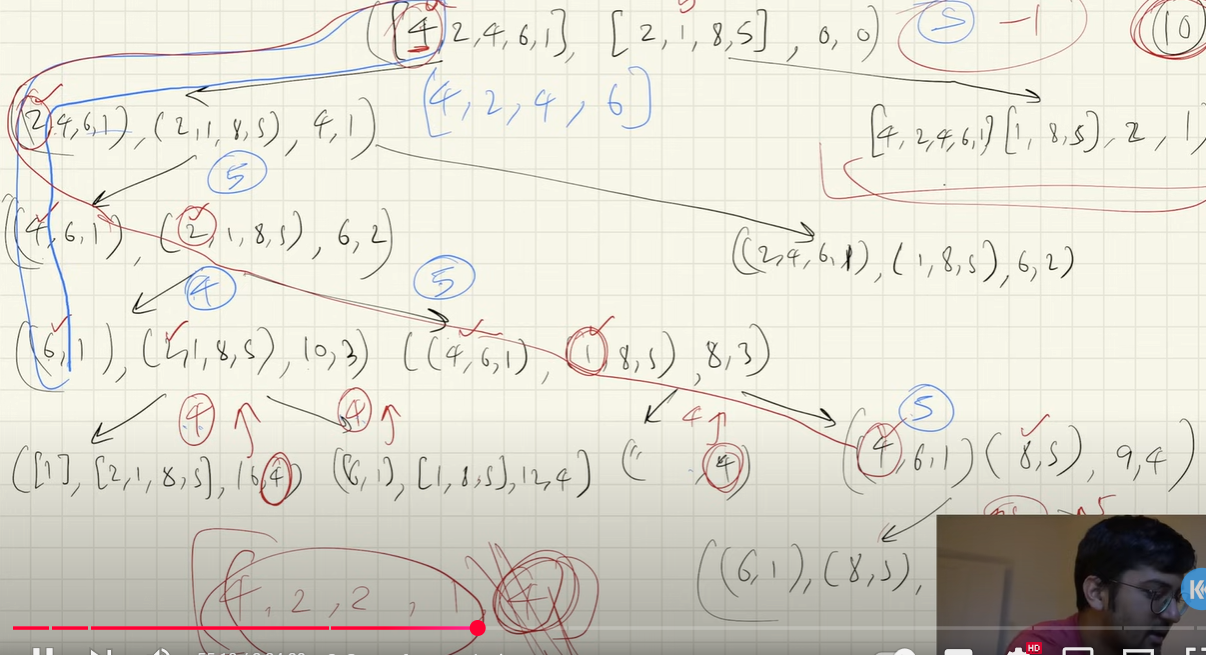 ([4, 2, 4, 6, 1], [2, 1, 8, 5], 0, 0) 5 -1 10
[4, 2, 4, 6]
(2, 4, 6, 1), (2, 1, 8, 5), 4, 1) [4, 2, 4, 6, 1] [1, 8, 5), 2, 1)
5
((4, 6, 1), (2, 1, 8, 5), 6, 2) ((2, 4, 6, 1), (1, 8, 5), 6, 2)
4 5
((6, 1), (2, 1, 8, 5), 10, 3) ((4, 6, 1), 1, 8, 5), 8, 3)
4 4 4 5
([1], [2, 1, 8, 5], 16, 4) (6, 1), [1, 8, 5], 12, 4] (" , 4) (4, 6, 1) (8, 5), 9, 4)
5
((6, 1), (8, 5),
4, 2, 2, 1 4
HD